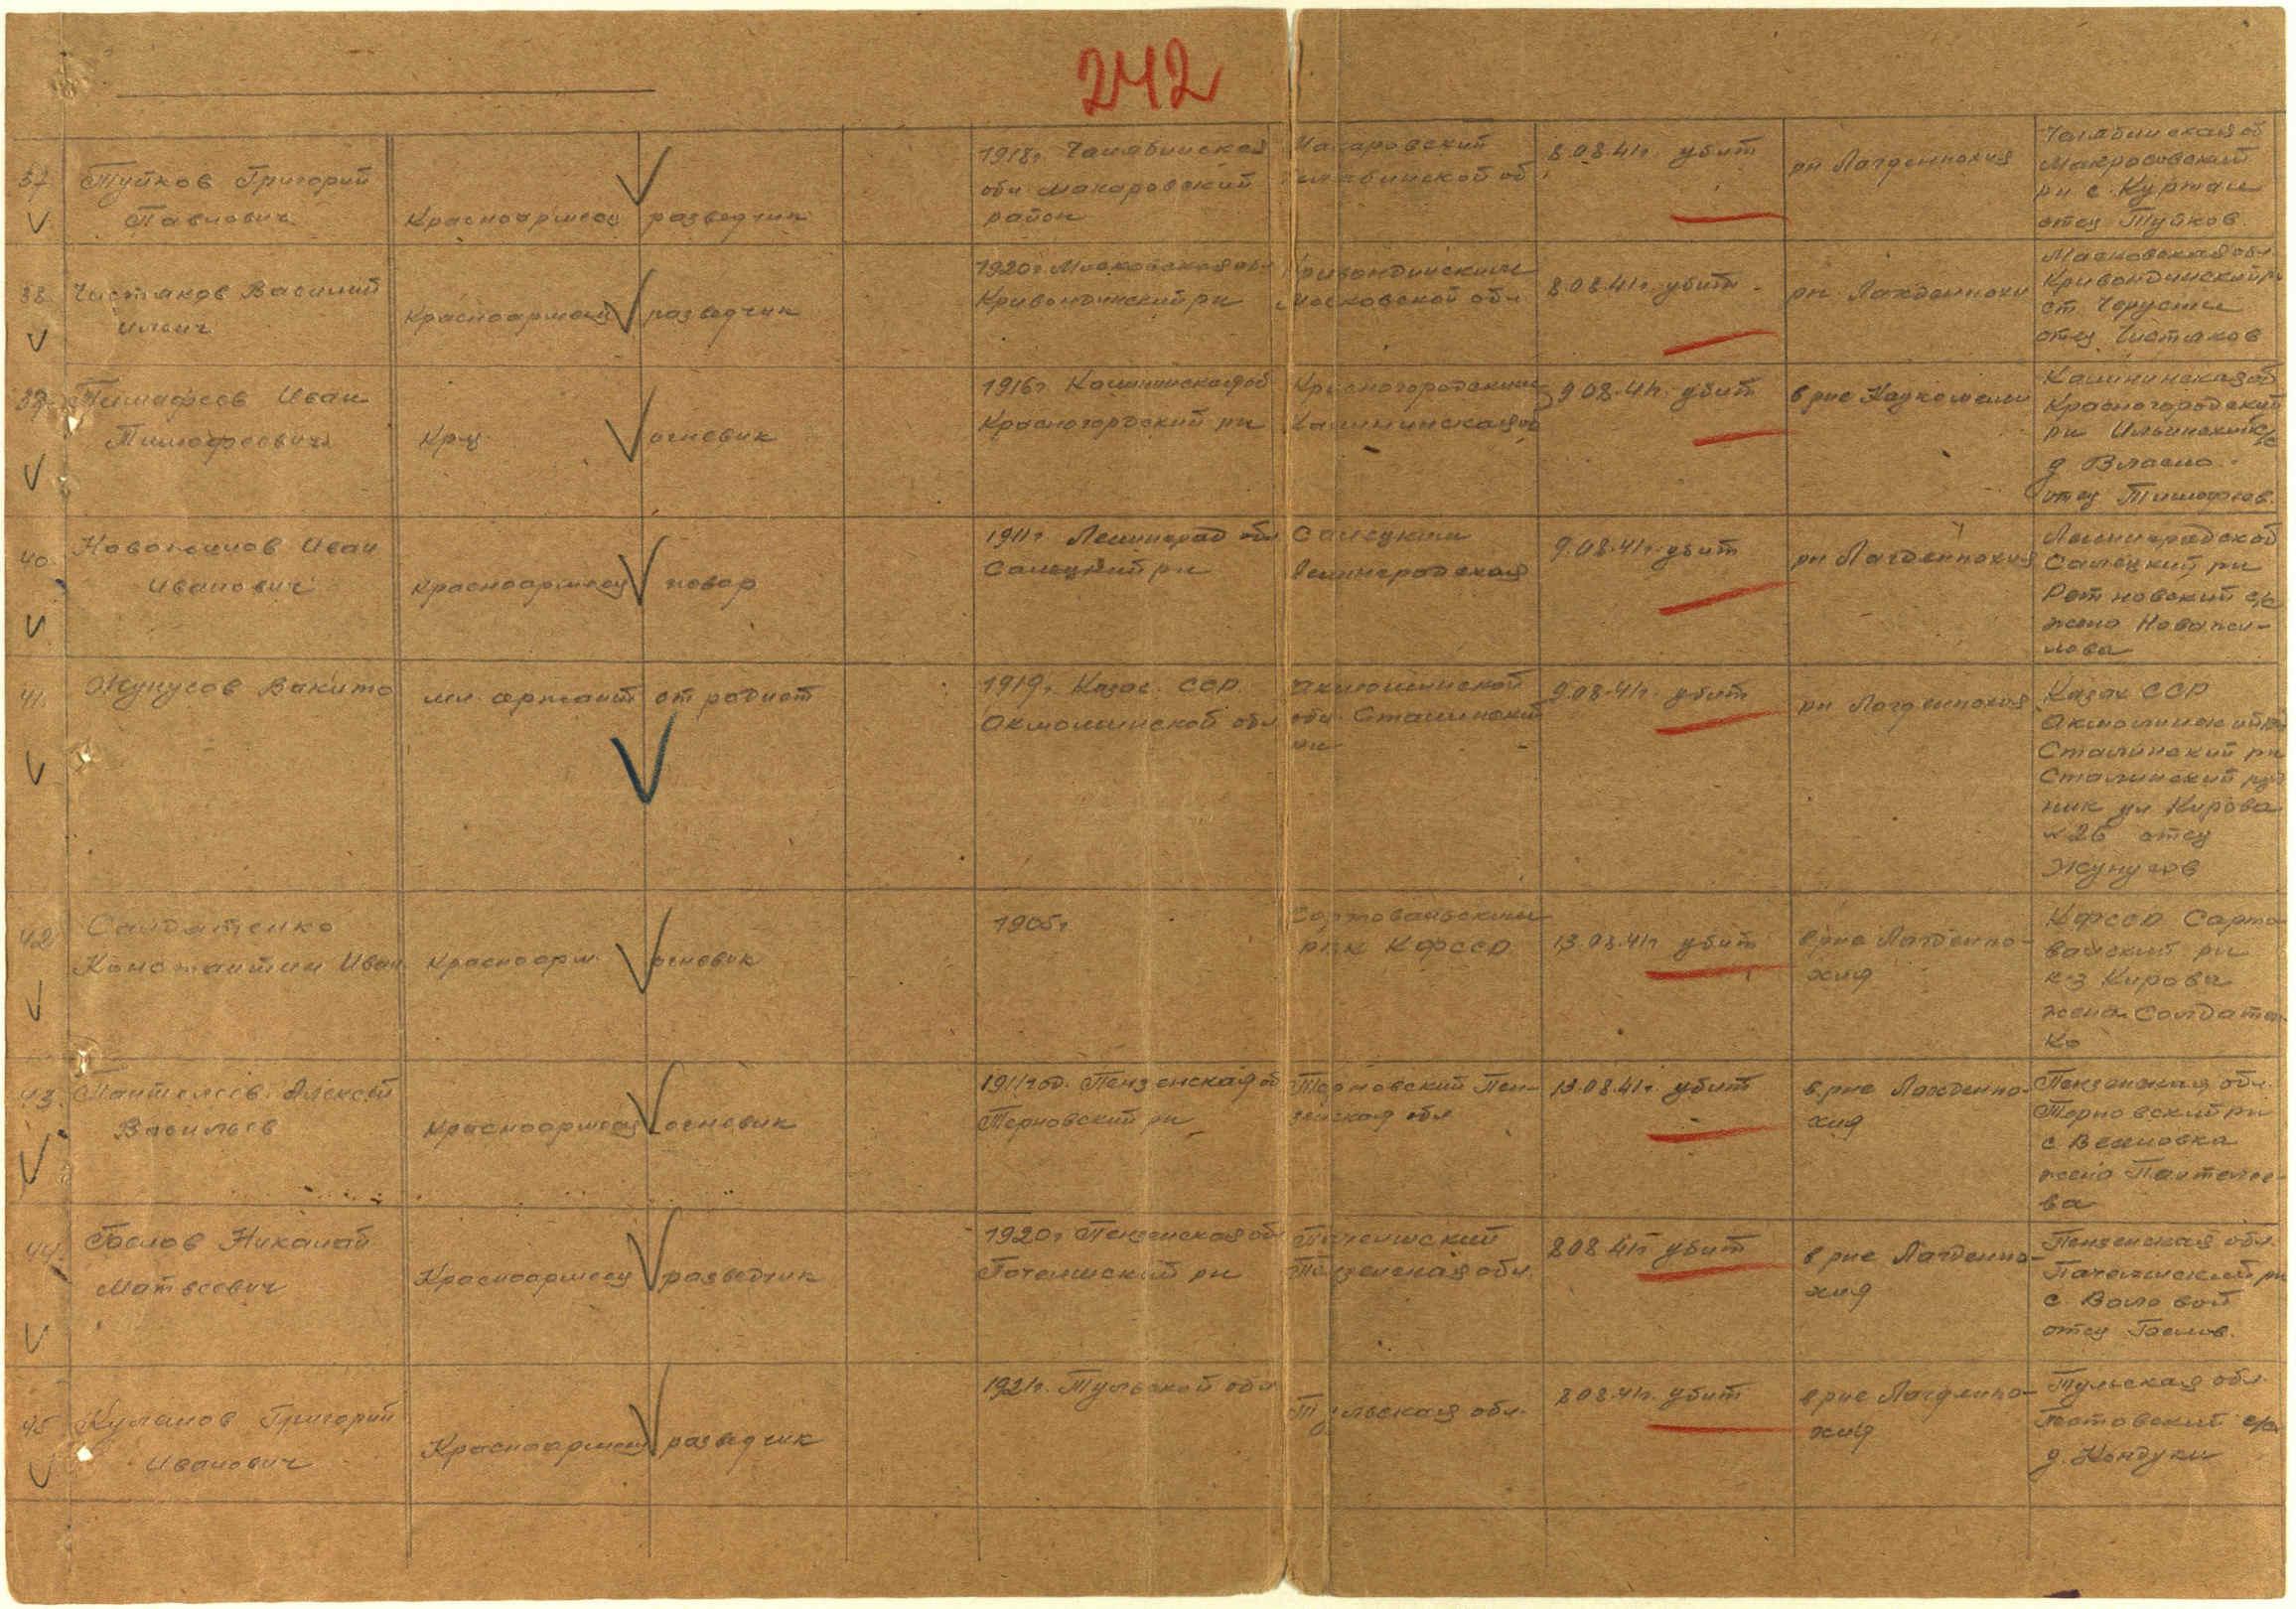 242
37 Туйков Григорий
Павлович
Красноармеец
разведчик
1918г. Челябинская
обл. Макаровский
район
Макаровский
Челябинской об
8.08.41г. убит
рн Лагденпохия
Челябинская об
Макровский
рн с. Куртан
отец Туйков.
38 Чистяков Василий
Илич
Красноармеец
разведчик
1920г. Московская обл
Кривондинский рн
Кривондинским
Московской обл
8.08.41г. убит
рн. Лахденпохи
Московская обл.
Кривондинский рн
ст. Черусти
отец Чистяков
39 Тимафеев Иван
Тимофеевич
Кр-ц.
огневик
1916г. Калининская об
Красногордский рн
Красногородским
Калининская об
9.08.41г. убит
в рне
Калининская об
Красногородский
рн Ильинский с/с
д. Власно.
отец Тимофеев.
40 Новожилов Иван
Иванович
Красноармеец
повар
1911г. Ленинград обл
Салецкий рн
Салецким
Ленинградская
9.08.41г. убит
рн Лагденпохия
Ленинградской
Салецкий рн
Ретновский с/с
жена Новажи-
лова
41. Жунусов Вакито
мл. сржант
ст радист
1919г. Казас. ССР
Акмолинской обл
Акмолинской
обл. Сталинский
рн
9.08.41г. убит
рн Лагденпохия
Казах ССР
Акмолинский
Сталинский рн
Сталинский руд
ник ул Кирова
№ 26 отец
Жунусов
42 Салдатенко
Константин Иван
Красноарм.
огневик
1905г
Сортовальским
рвк КФССР
13.08.41г. убит
в рне Лагденпо-
хия
КФССР Сорто
вальский рн
к-з Кирова
жена Солдатен
ко
43. Пантелеев Алексей
Васильев
Красноармеец
огневик
1911год. Пензенская об
Терновский рн
Терновский Пен-
зенская обл
13.08.41г. убит
в рне Лахденпо-
хия
Пензенская обл.
Терновский рн
с Веселовка
жена Пантелее-
ва
44. Гослов Николай
Матвеевич
Красноармеец
разведчик
1920г. Пензенская обл
Почелмский рн
Пачелмский
Пензенская обл.
8.08.41г. убит
в рне Лагденпо-
хия
Пензенская обл.
Пачелмский рн
с Воловой
отец Гослов.
45 Куланов Григорий
Иванович
Красноармеец
разведчик
1921г. Тульской обл
Тульская обл.
8.08.41г. убит
в рне Лагденпо-
хия
Тульская обл.
с/с
д. Кондуки